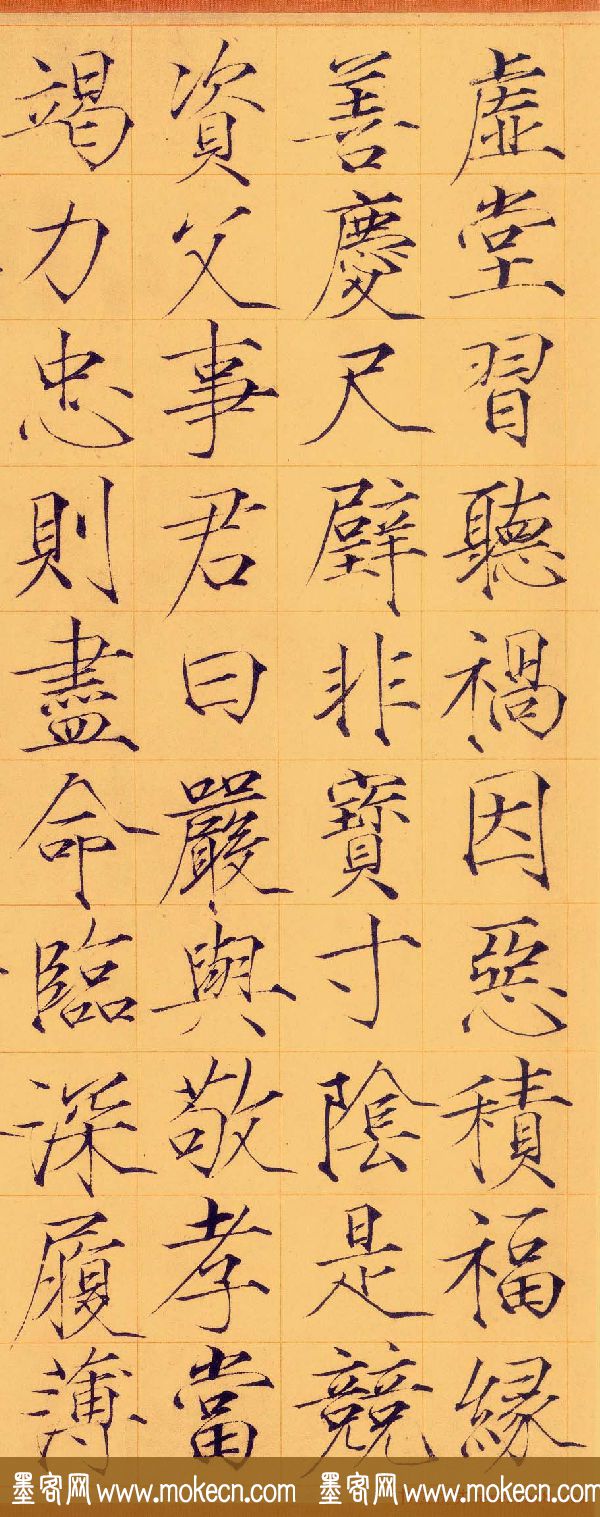 虛堂習聽禍因惡積福緣
善慶尺璧非寶寸陰是競
資父事君曰嚴與敬孝當
竭力忠則盡命臨深履薄
墨客网 www.mokecn.com 墨客网 www.mokecn.com